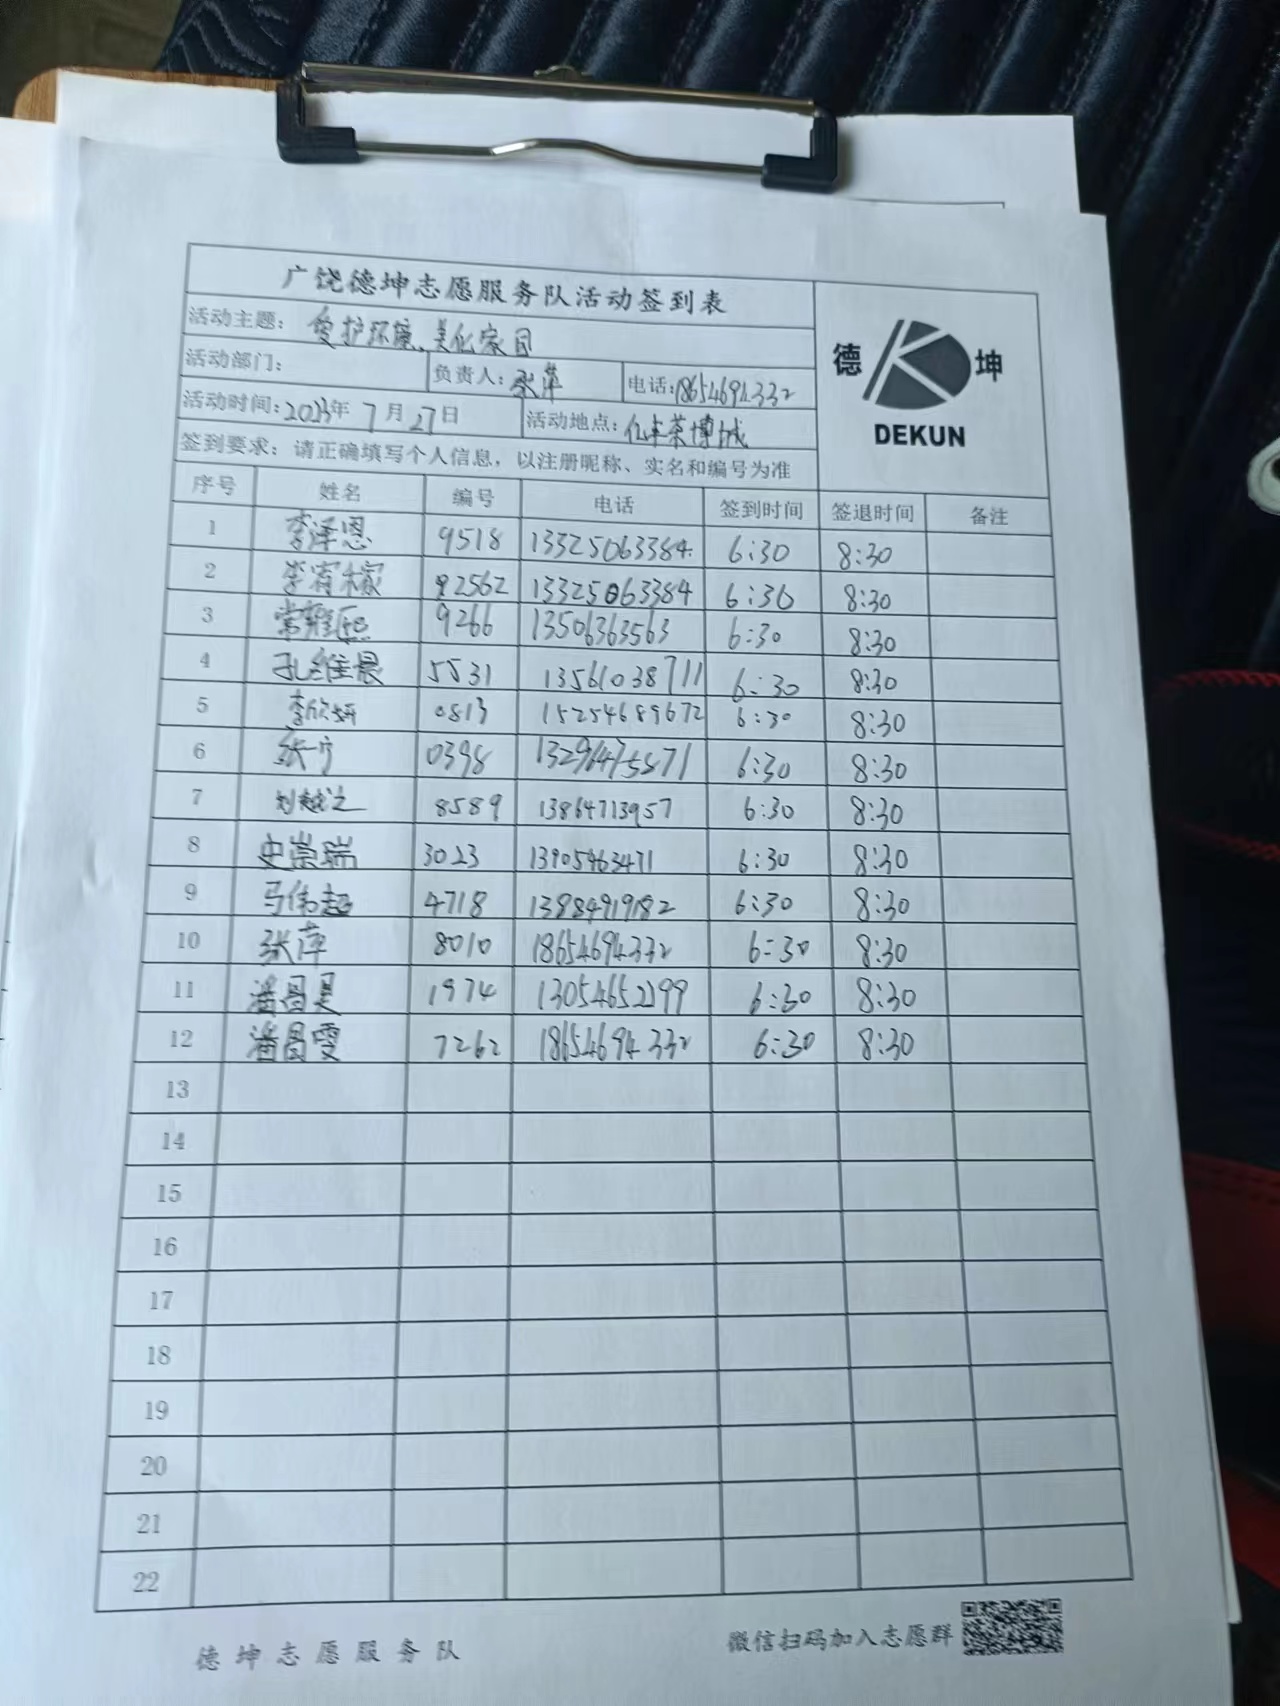 广饶德坤志愿服务队活动签到表
活动主题：爱护环境、美化家园
德 坤
DEKUN
活动部门： 负责人：张萍 电话：18654694332
活动时间：2023年7月27日 活动地点：亿丰菜博城
签到要求：请正确填写个人信息，以注册昵称、实名和编号为准
序号 姓名 编号 电话 签到时间 签退时间 备注
1 李泽恩 9518 13325063384 6:30 8:30
2 李 92562 13325063384 6:30 8:30
3 常雅熙 9266 13506363563 6:30 8:30
4 孔维晨 5531 13561038711 6:30 8:30
5 李欣妍 0813 15254689672 6:30 8:30
6 张宁 0398 6:30 8:30
7 刘越之 8589 13864713957 6:30 8:30
8 史崇瑞 3023 13905463471 6:30 8:30
9 马伟超 4718 13984919182 6:30 8:30
10 张萍 8010 18654694332 6:30 8:30
11 潘昌昊 1974 13054652199 6:30 8:30
12 潘昌雯 7262 18654694332 6:30 8:30
13
14
15
16
17
18
19
20
21
22
德坤志愿服务队 微信扫码加入志愿群